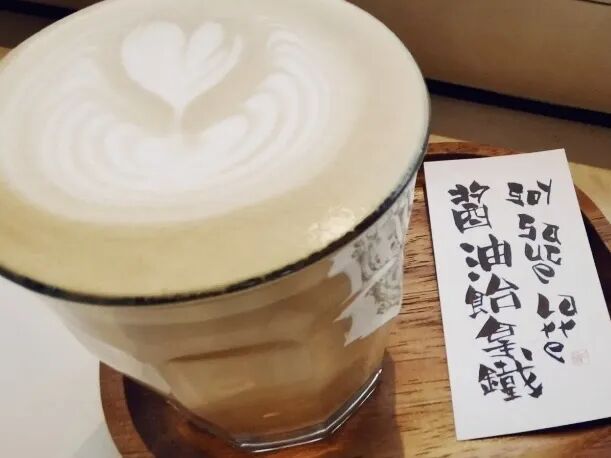 soy sauce latte
醬油飴拿鐵